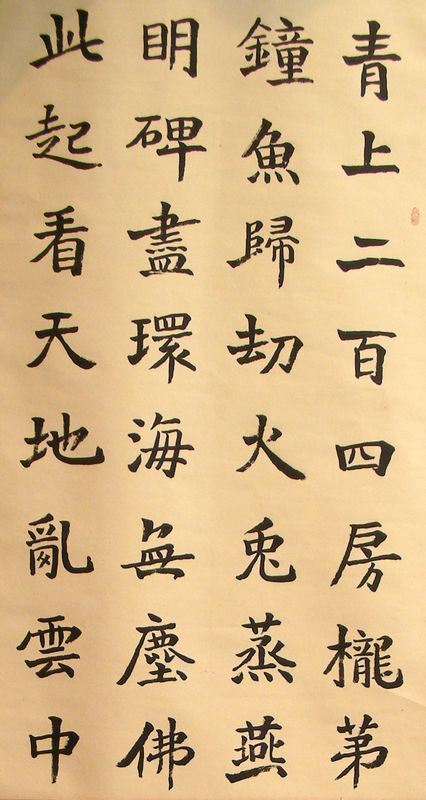 青上二百四房櫳第
鐘魚歸劫火兎蒸燕
明碑盡環海無塵佛
此起看天地亂雲中